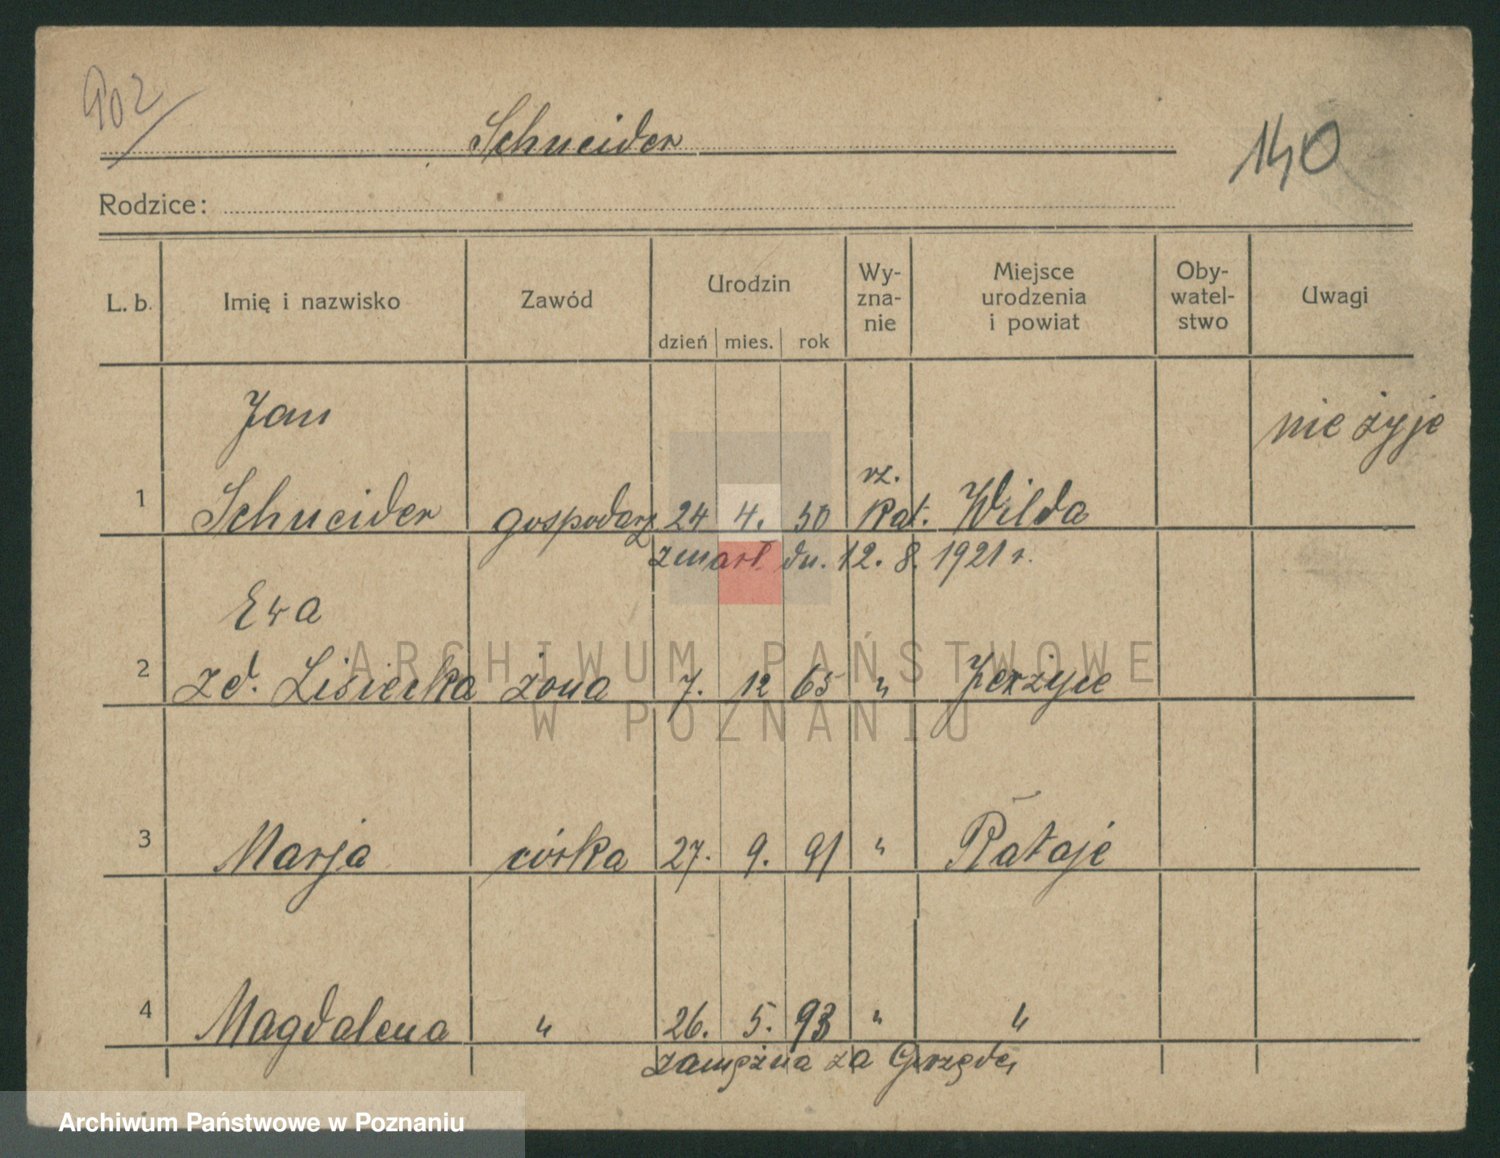 902
Schneider
140
Rodzice:
L. b. Imię i nazwisko Zawód Urodzin dzień mies. rok Wy-zna-nie Miejsce urodzenia i powiat Oby-watel-stwo Uwagi
Jan nie żyje
1 Schneider gospodarz 24 4. 50 rz. Kat. Wilda
zmarł dn. 12. 8. 1921 r.
Ewa
2 zd. Lisiecka żona 7. 12 65 " Jerzyce
3 Marja córka 27. 9. 91 " Rataje
4 Magdalena " 26. 5. 93 " "
zamężna za Grzędę
ARCHIWUM PAŃSTWOWE
W POZNANIU
Archiwum Państwowe w Poznaniu